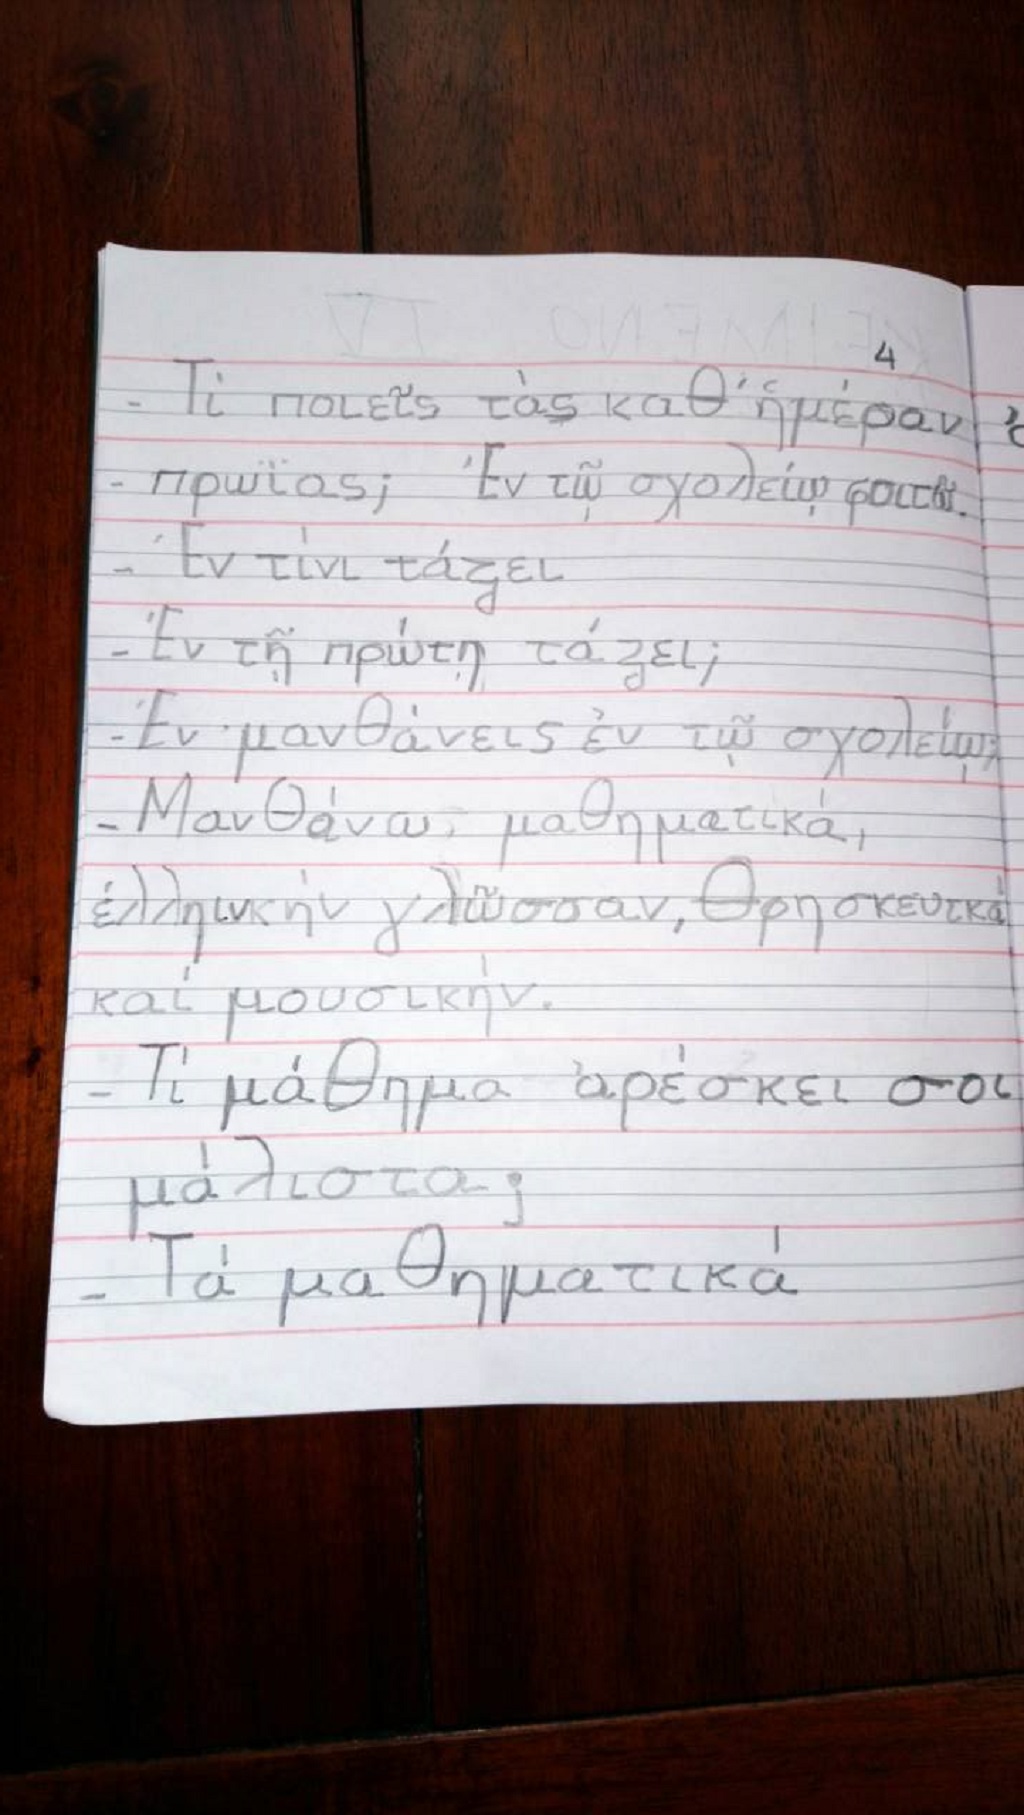 4
- Τί ποιεῖς τὰς καθ' ἡμέραν
- πρωΐας; Ἐν τῷ σχολείῳ φοιτῶ.
- Ἐν τίνι τάξει
- Ἐν τῇ πρώτῃ τάξει;
- Ἐν μανθάνεις ἐν τῷ σχολείῳ;
- Μανθάνω; μαθηματικά,
ἑλληνικήν γλῶσσαν, Θρησκευτκά
καί μουσικήν.
- Τί μάθημα ἀρέσκει σοι
μάλιστα;
- Τά μαθηματικά